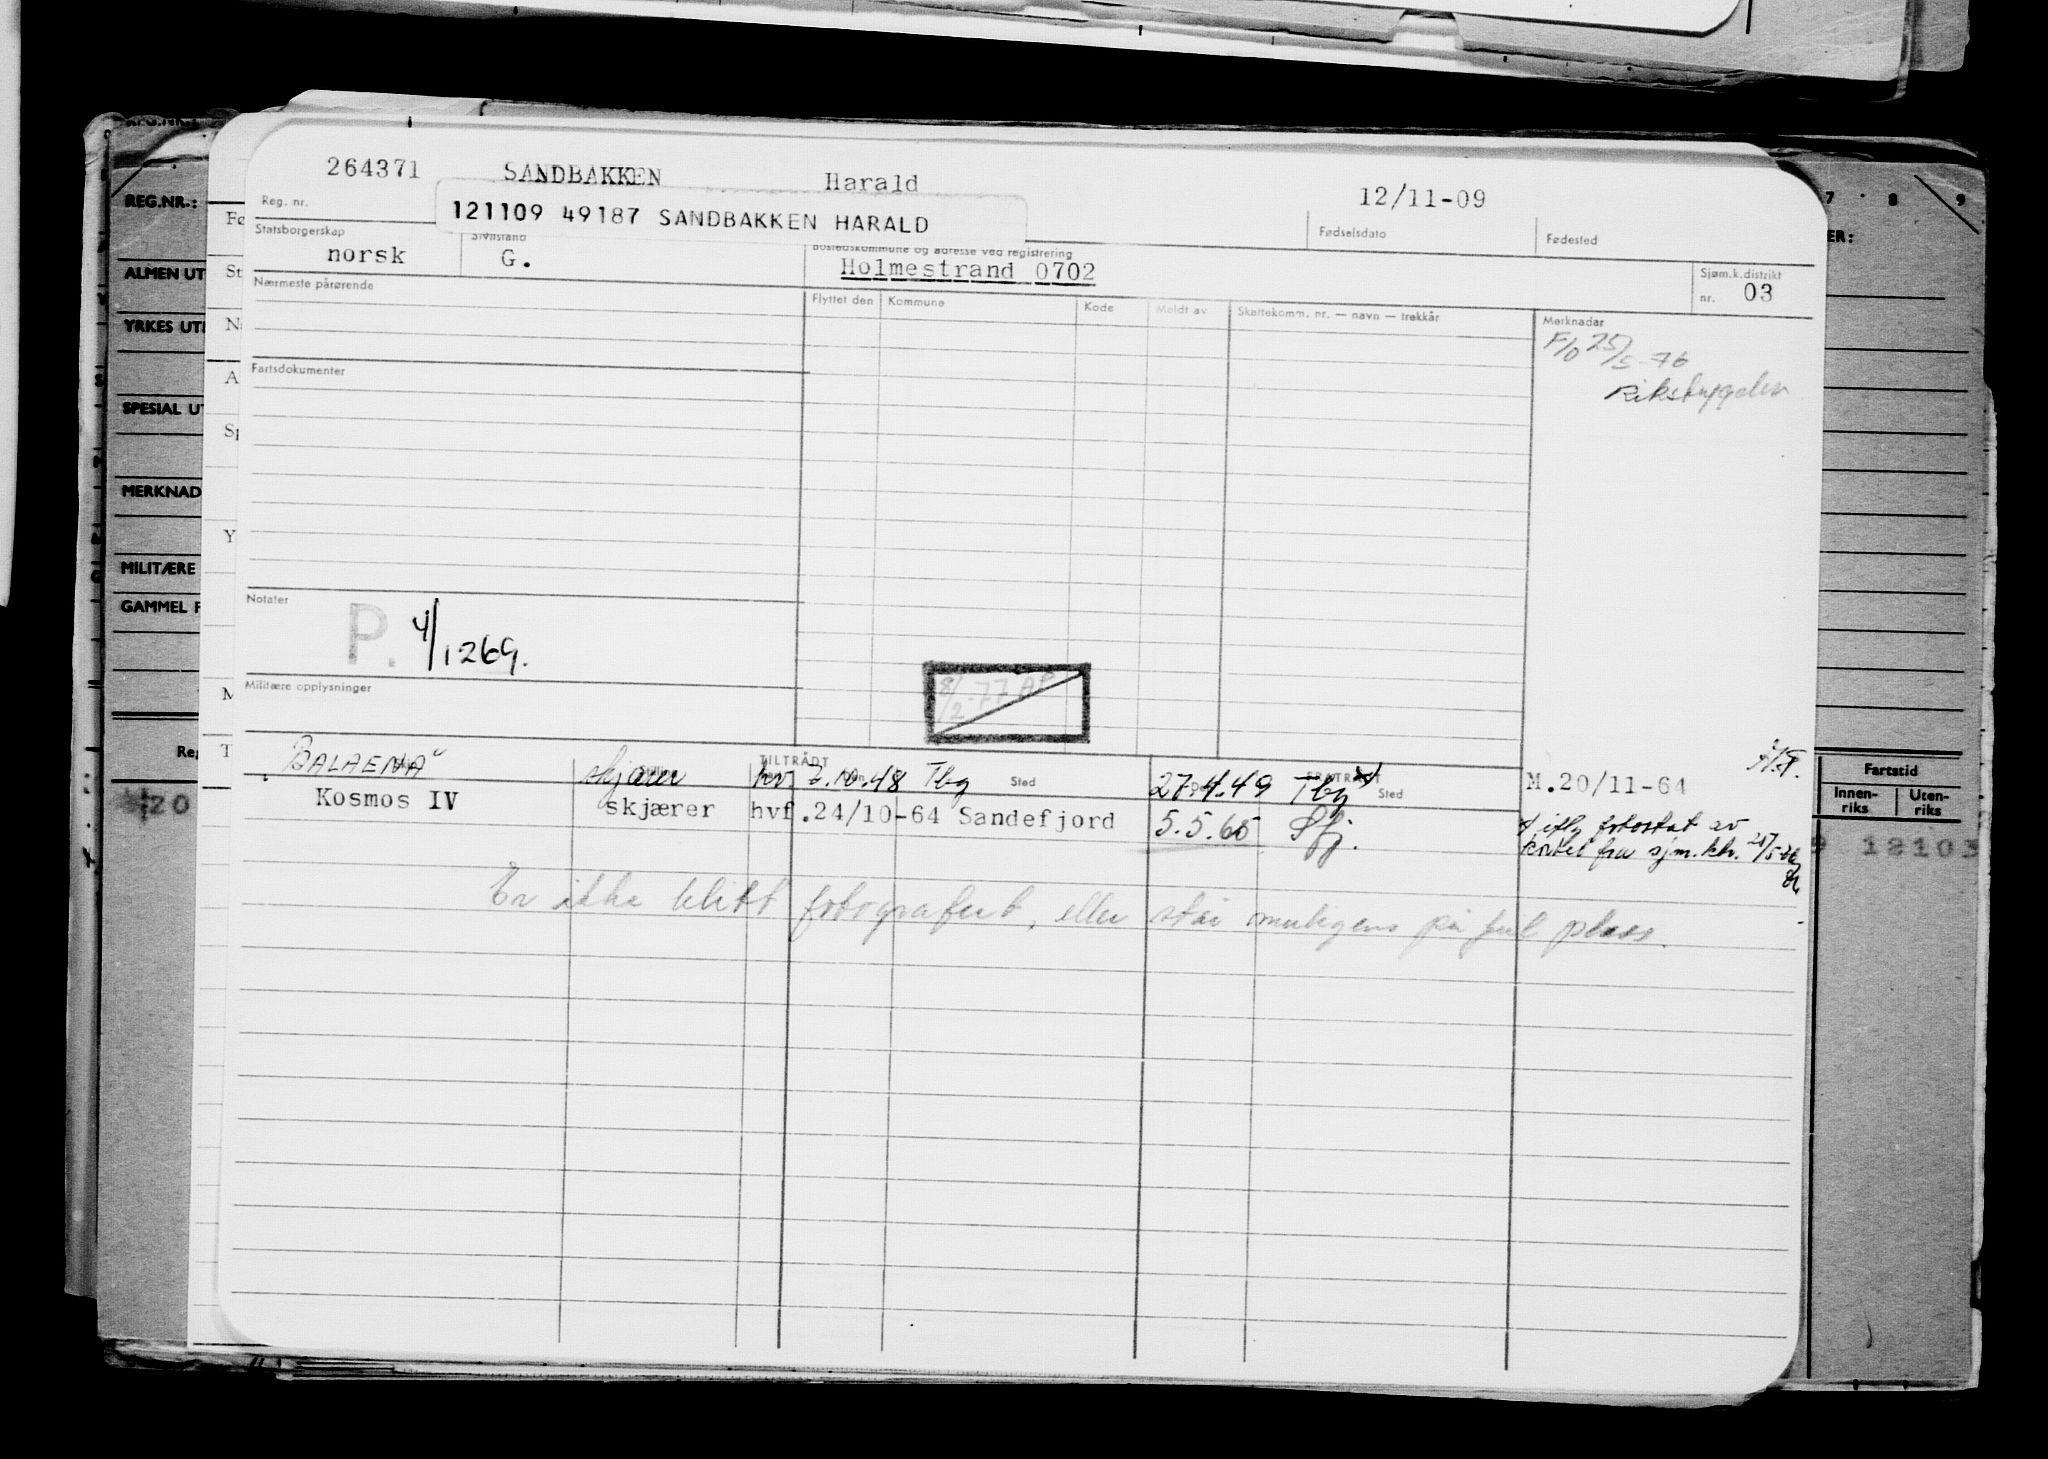 264371 SANDBAKKEN Harald 12/11-09
Reg. nr. 121109 49187 SANDBAKKEN HARALD Fødselsdato Fødested
Statsborgerskap Sivilstand Bostedskommune og adresse ved registrering
norsk G. Holmestrand 0702
Sjøm.k.distrikt
nr. 03
Nærmeste pårørende Flyttet den Kommune Kode Meldt av Skattekomm. nr. — navn — trekkår Merknader
F/O 25/5-76
Rikstrygden
Fartsdokumenter
Notater
P. 4/1269.
8/2-77
Militære opplysninger
TILTRÅDT Sted FRATRÅDT Sted
"BALAENA" skjærer hv. 2.10.48 Tbg 27.4.49 Tbg x)
Kosmos IV skjærer hvf. 24/10-64 Sandefjord 5.5.65 Sfj. M.20/11-64
x) iflg fotostat av
kortet fra sjm.ktr. 25/5-76
Er ikke blitt fotografert, eller står muligens på feil plass.
REG.NR.:
ALMEN UT
YRKES UT
SPESIAL UT
MERKNAD
MILITÆRE
GAMMEL F
Reg
Fø
St
N
A
Sp
Y
M
T
7 8 9
ER:
Fartstid
Innen-
riks
Uten-
riks
20
9 12103